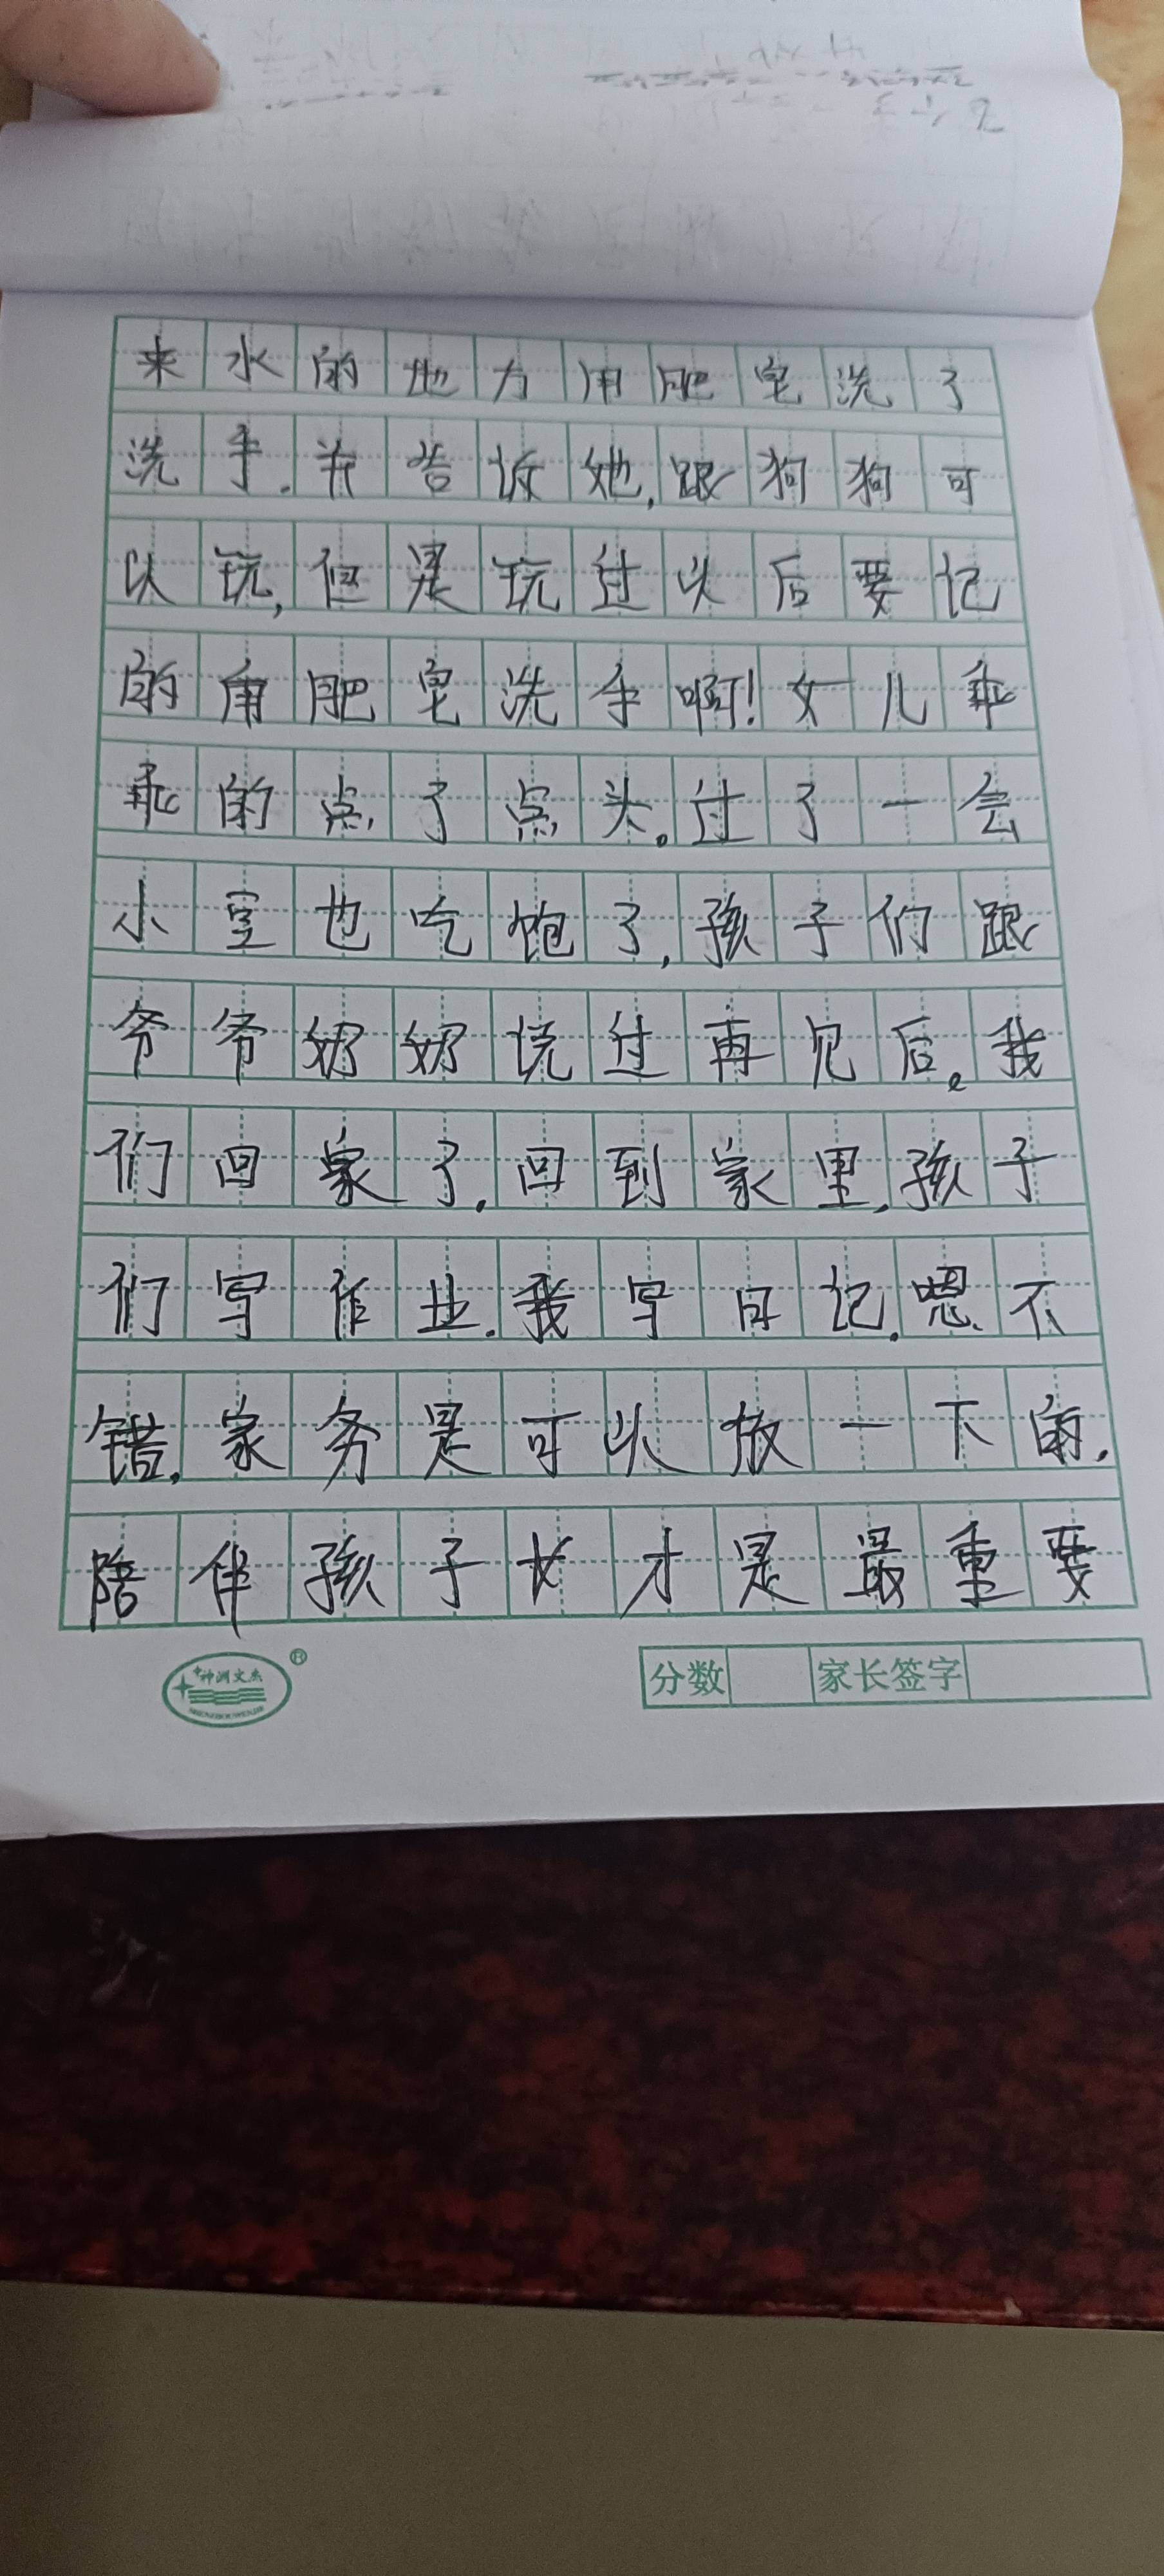 来水的地方用肥皂洗了
洗手.并告诉她,跟狗狗可
以玩,但是玩过以后要记
的用肥皂洗手啊!女儿乖
乖的点了点头。过了一会
小宝也吃饱了,孩子们跟
爷爷奶奶说过再见后。我
们回家了.回到家里,孩子
们写作业.我写日记.嗯.不
错,家务是可以放一下的,
陪伴孩子才是最重要
神洲文杰
SHENZHOUWENJIE
分数 家长签字